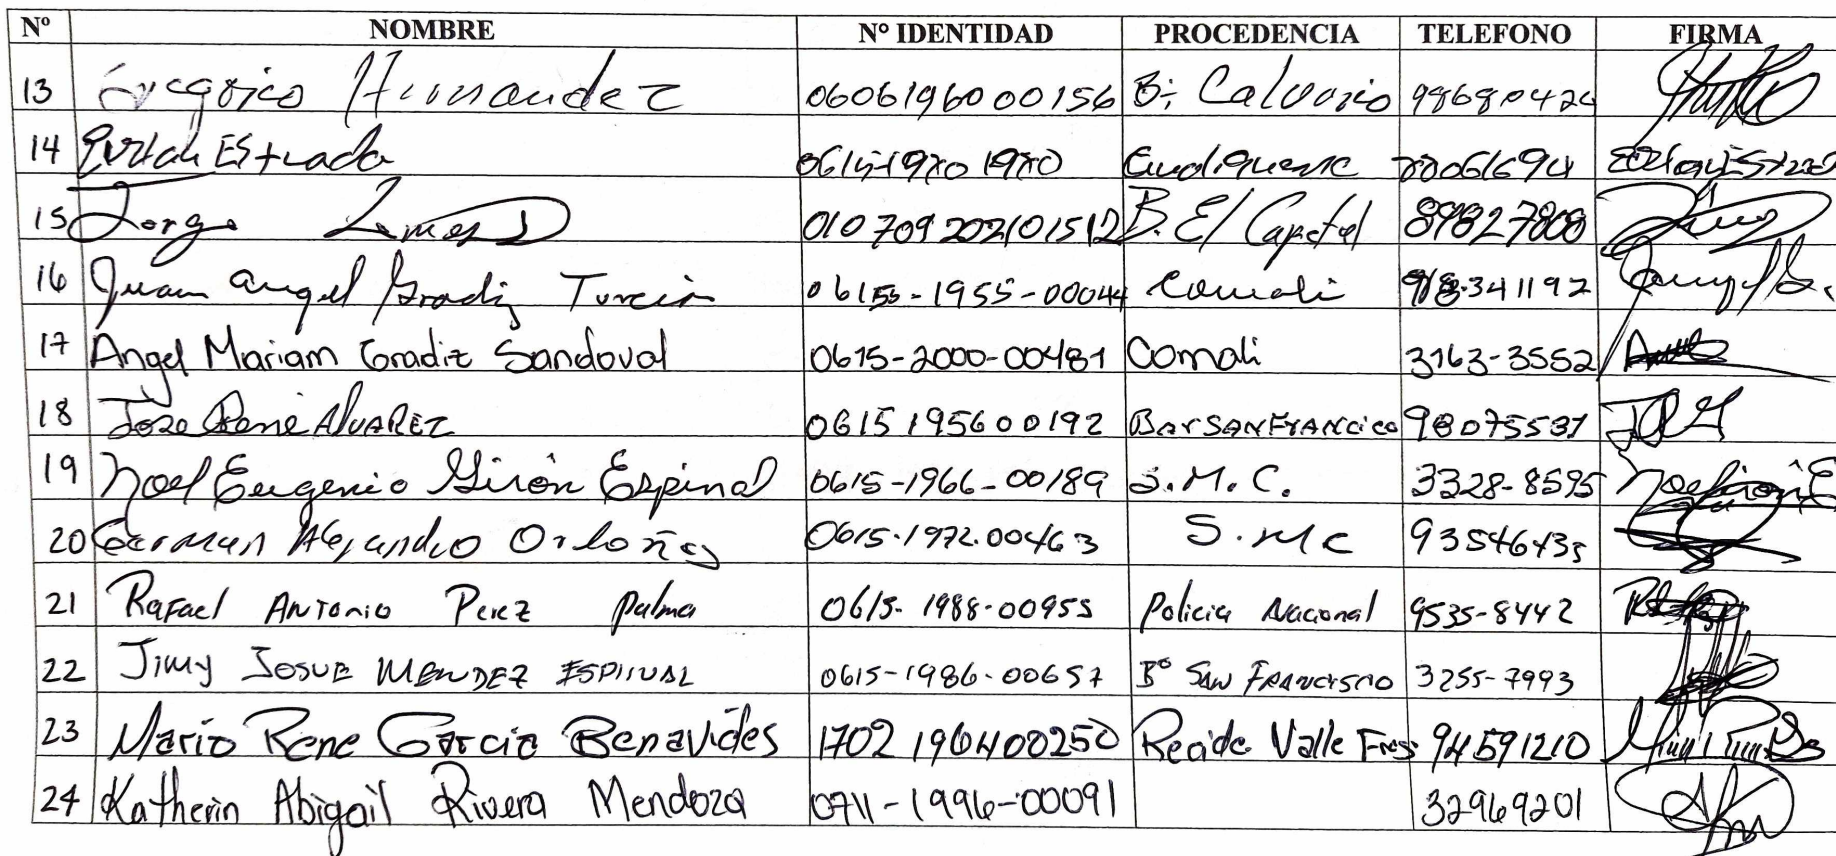 Nº NOMBRE Nº IDENTIDAD PROCEDENCIA TELEFONO FIRMA
13 Gregorio Hernandez 0606196000156 B: Calvario 9868042
14 Estrada
15 Jorge Lemus B. El Capital 89827808
16 Juan Angel Gradiz Turcios -1955-00044 Comali 341192
17 Angel Mariam Gradiz Sandoval 0615-2000-00481 Comali 3163-3552
18 Jose Rene Alvarez 0615195600192 Bar San Francico 98075537
19 Noel Eugenio Girón Espinal 0615-1966-00189 S.M.C. 3328-8595
20 German Alejandro Ordoñez 0615.1972.00463 S.MC 93546435
21 Rafael Antonio Perez Palma 0615-1988-00955 Policia Nacional 9535-8442
22 Jimy Josue Mendez Espinal 0615-1986-00657 Bº San Francisco 3255-7993
23 Mario Rene Garcia Benavides 1702196400250 Recide Valle Fres 94591210
24 Katherin Abigail Rivera Mendoza 0711-1996-00091 32969201